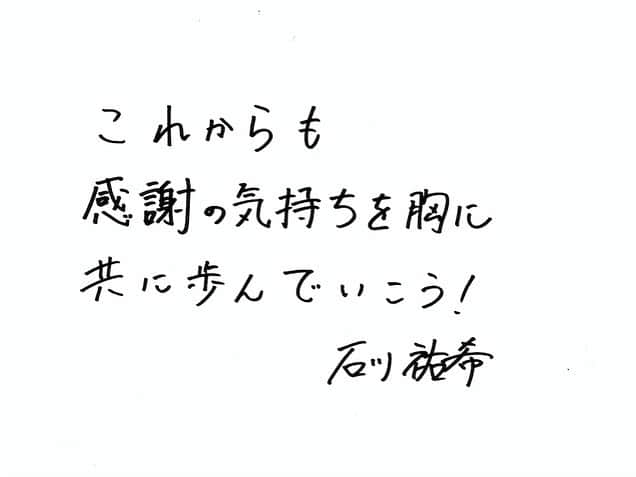 これからも
感謝の気持ちを胸に
共に歩んでいこう!
石川祐希